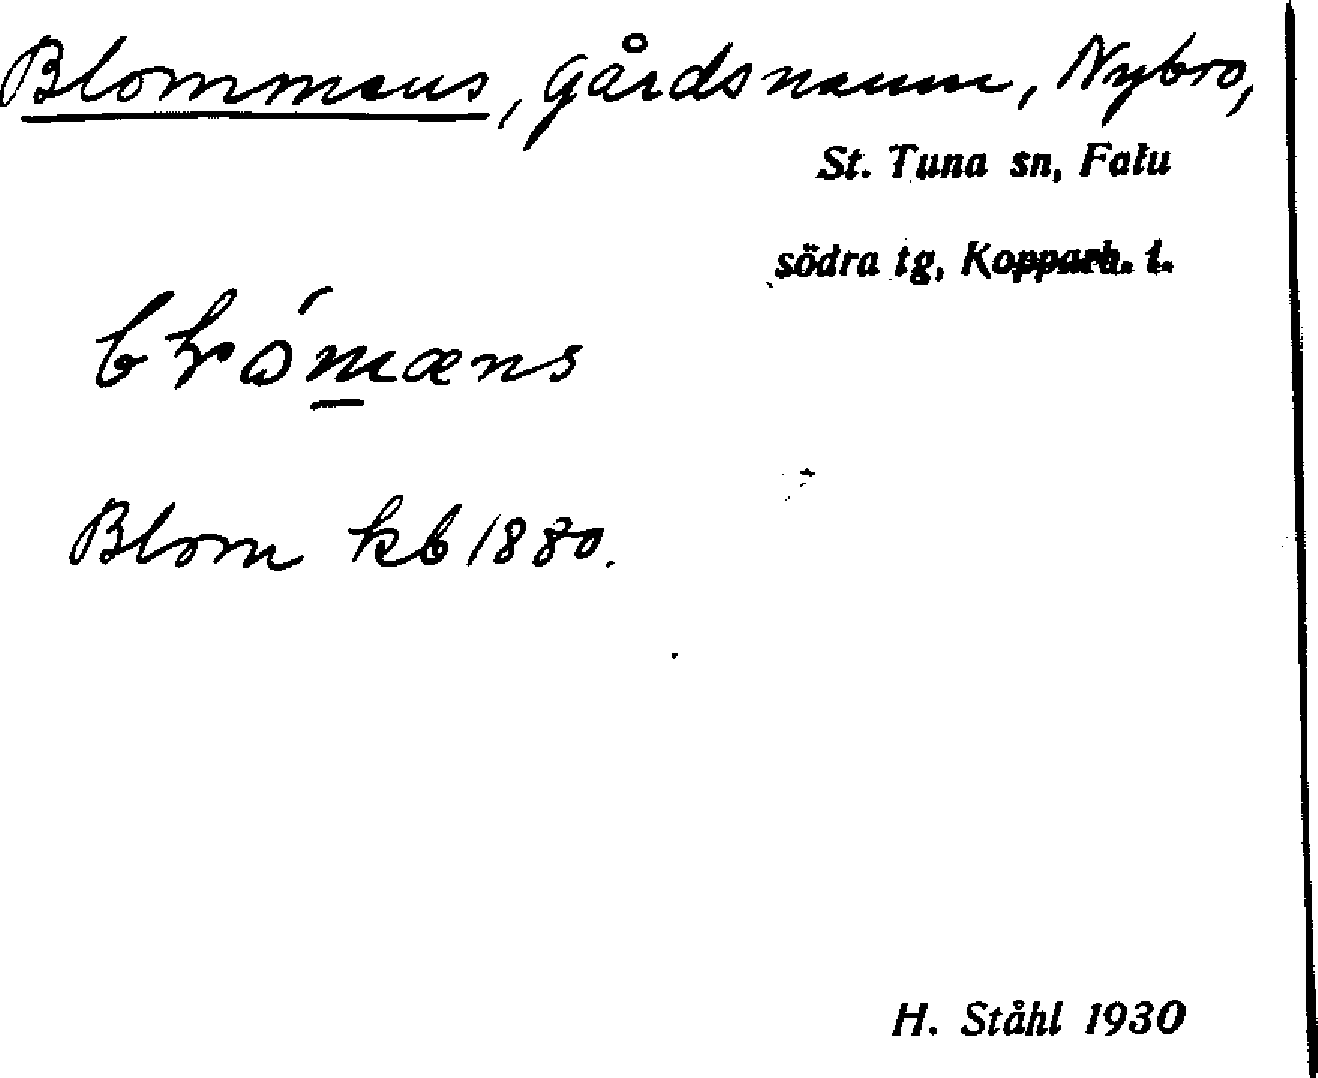 Blommans, gårdsnamn, Nybro,
St. Tuna sn, Falu
södra tg, Kopparb. l.
Blom kb 1880.
H. Ståhl 1930